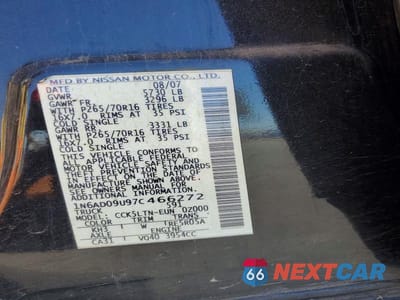 MFD BY NISSAN MOTOR CO., LTD.
DATE 08/07
GVWR 5730 LB
GAWR FR 3296 LB
WITH P265/70R16 TIRES
16X7.0 RIMS AT 35 PSI
COLD SINGLE
GAWR RR 3331 LB
WITH P265/70R16 TIRES
16X7.0 RIMS AT 35 PSI
COLD SINGLE
THIS VEHICLE CONFORMS TO
ALL APPLICABLE FEDERAL
MOTOR VEHICLE SAFETY AND
THEFT PREVENTION STANDARDS
IN EFFECT ON
SEE OWNERS MANUAL FOR
ADDITIONAL INFORMATION.
1N6AD09U97C466272
TRUCK 391
CCK5LTN-EUN 02000
COLOR TRIM TRANS
KH3 W RE5R05A
AXLE ENGINE
CA31 VQ40 3954CC
66 NEXTCAR